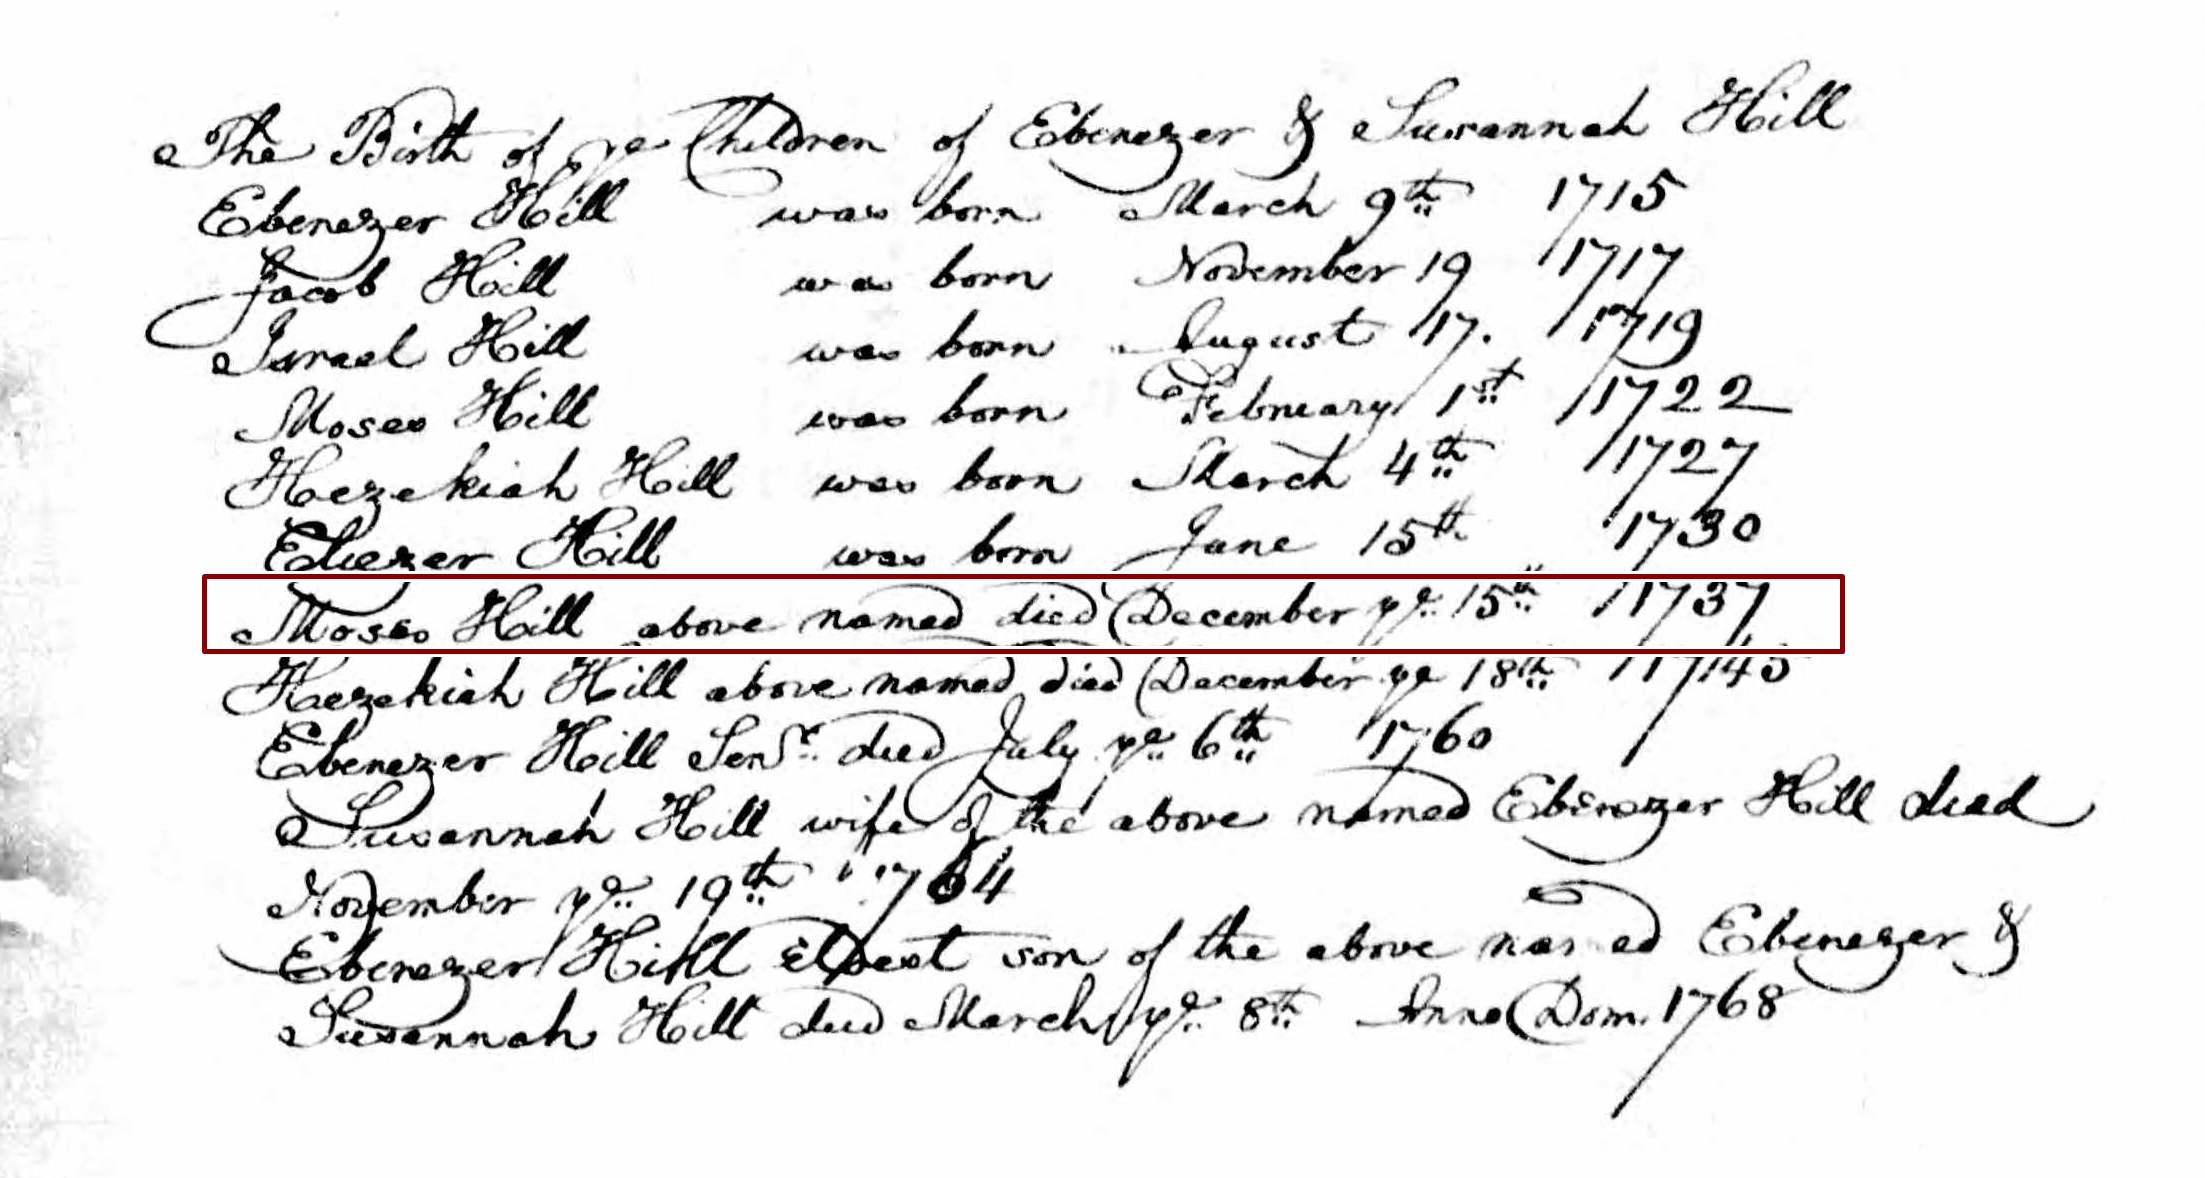 The Birth of ye Children of Ebenezer & Susannah Hill
Ebenezer Hill was born March 9th 1715
Jacob Hill was born November 19 1717
Israel Hill was born August 17. 1719
Moses Hill was born February 1st 1722
Hezekiah Hill was born March 4th 1727
Eliezer Hill was born June 15th 1730
Moses Hill above named died December ye 15th 1737
Hezekiah Hill above named died December ye 18th 1745
Ebenezer Hill Senr. died July ye 6th 1760
Susannah Hill wife of the above named Ebenezer Hill died
November ye 19th 1764
Ebenezer Hill eldest son of the above named Ebenezer &
Susannah Hill died March ye 8th Anno Dom. 1768